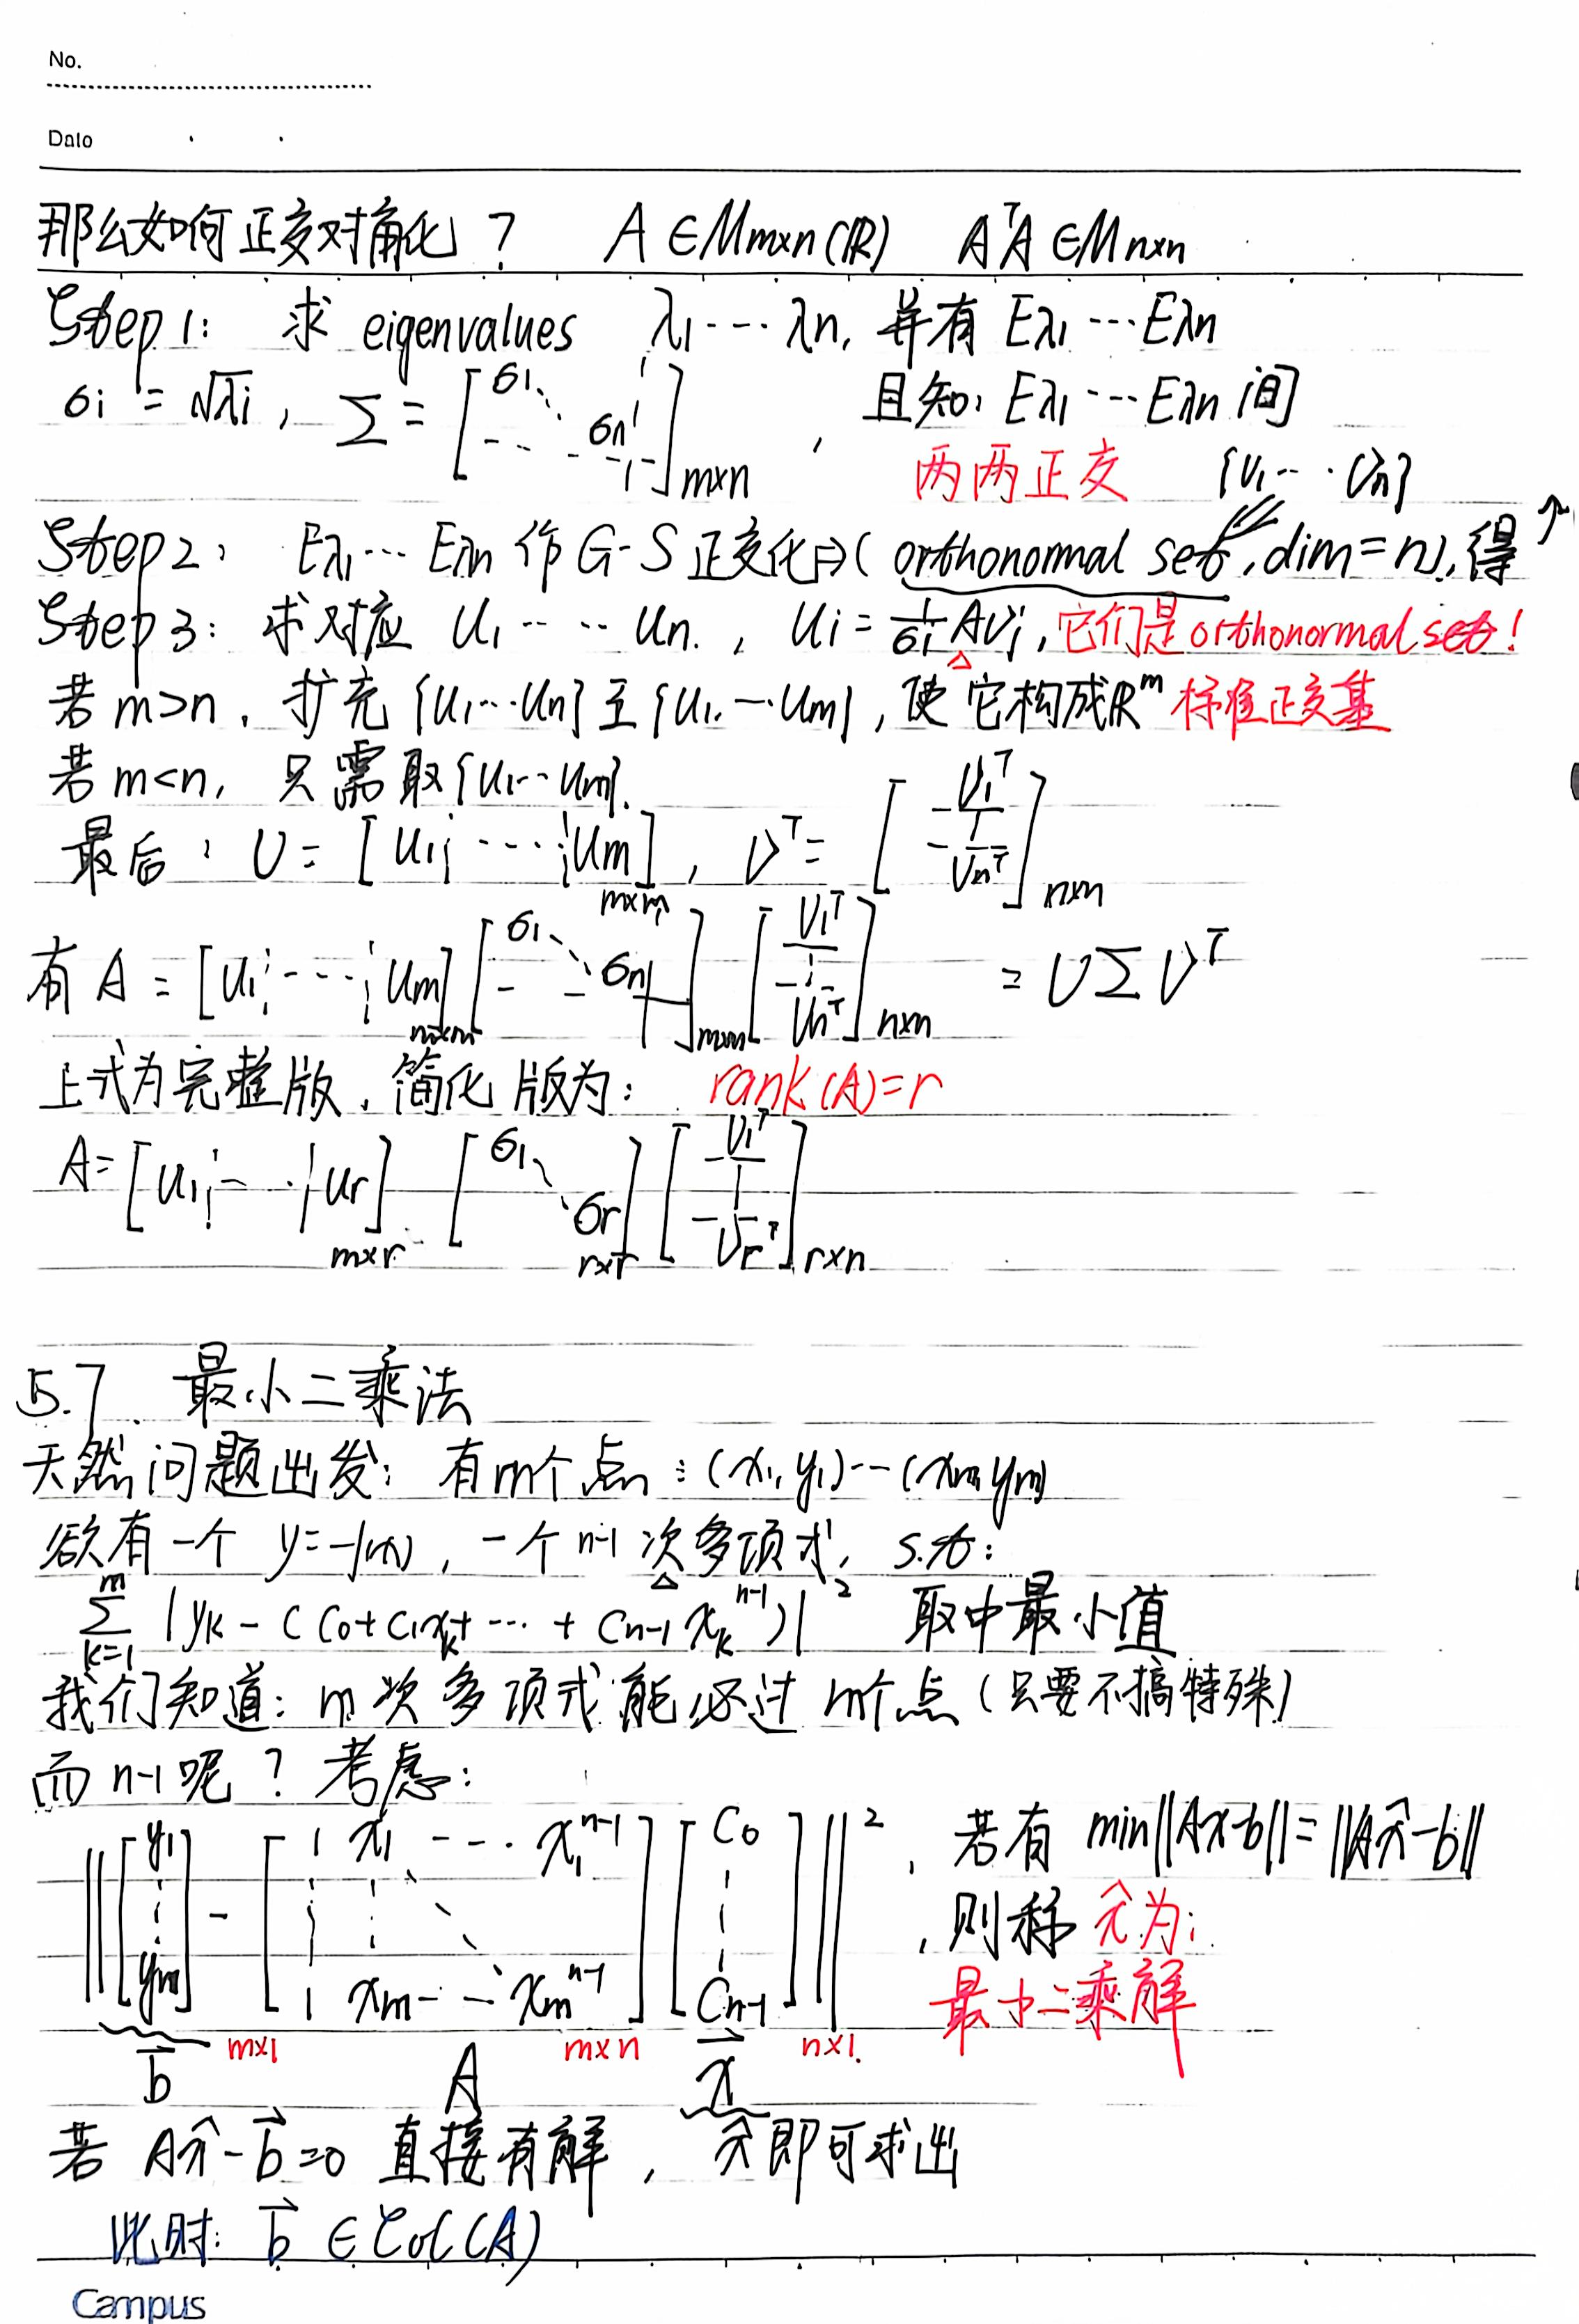 No.
Date
那么如何正交对角化？ A∈Mm×n(ℝ) AᵀA∈Mn×n
Step 1: 求 eigenvalues λ1···λn, 并有 Eλ1···Eλn
σi = √λi , Σ = [σ1 ⋱ σn]m×n , 且知: Eλ1···Eλn 间
两两正交 {v1···vn}
Step 2: Eλ1···Eλn 作 G-S 正交化⇒( orthonormal set, dim=n), 得↑
Step 3: 求对应 u1····un. , ui = 1/σi Avi, 它们是 orthonormal set!
若 m>n , 扩充 {u1···un} 至 {u1,···um}, 使它构成ℝᵐ 标准正交基
若 m<n, 只需取{u1··um}.
最后: U = [u1 ¦ ···· ¦ um]m×m , Vᵀ = [v1ᵀ ⋮ vnᵀ]n×n
有 A = [u1 ¦ ···· ¦ um]m×m [σ1 ⋱ σn]m×n [v1ᵀ ⋮ vnᵀ]n×n = UΣVᵀ
上式为完整版, 简化版为: rank(A)=r
A = [u1 ¦ ··· ¦ ur]m×r [σ1 ⋱ σr]r×r [v1ᵀ ⋮ vrᵀ]r×n
5.7 最小二乘法
天然问题出发: 有m个点: (x1, y1)···(xm, ym)
欲有一个 y=f(x), 一个 n-1 次多项式, s.t:
Σ(k=1→m) |yk - (c0+c1xk+ ··· + cn-1 xkⁿ⁻¹)|² 取中最小值
我们知道: m 次多项式能必过 m个点 (只要不搞特殊)
而 n-1 呢? 考虑:
‖[y1 ⋮ ym] - [1 x1 ··· x1ⁿ⁻¹ ⋮ ⋮ ⋱ 1 xm ··· xmⁿ⁻¹] [c0 ⋮ cn-1]‖² , 若有 min‖Ax-b‖ = ‖Ax̂-b‖
, 则称 x̂为:
最小二乘解
m×1 m×n n×1.
b⃗ A x⃗
若 Ax̂-b⃗=0 直接有解, x̂即可求出
此时: b⃗ ∈ Col(A)
Campus